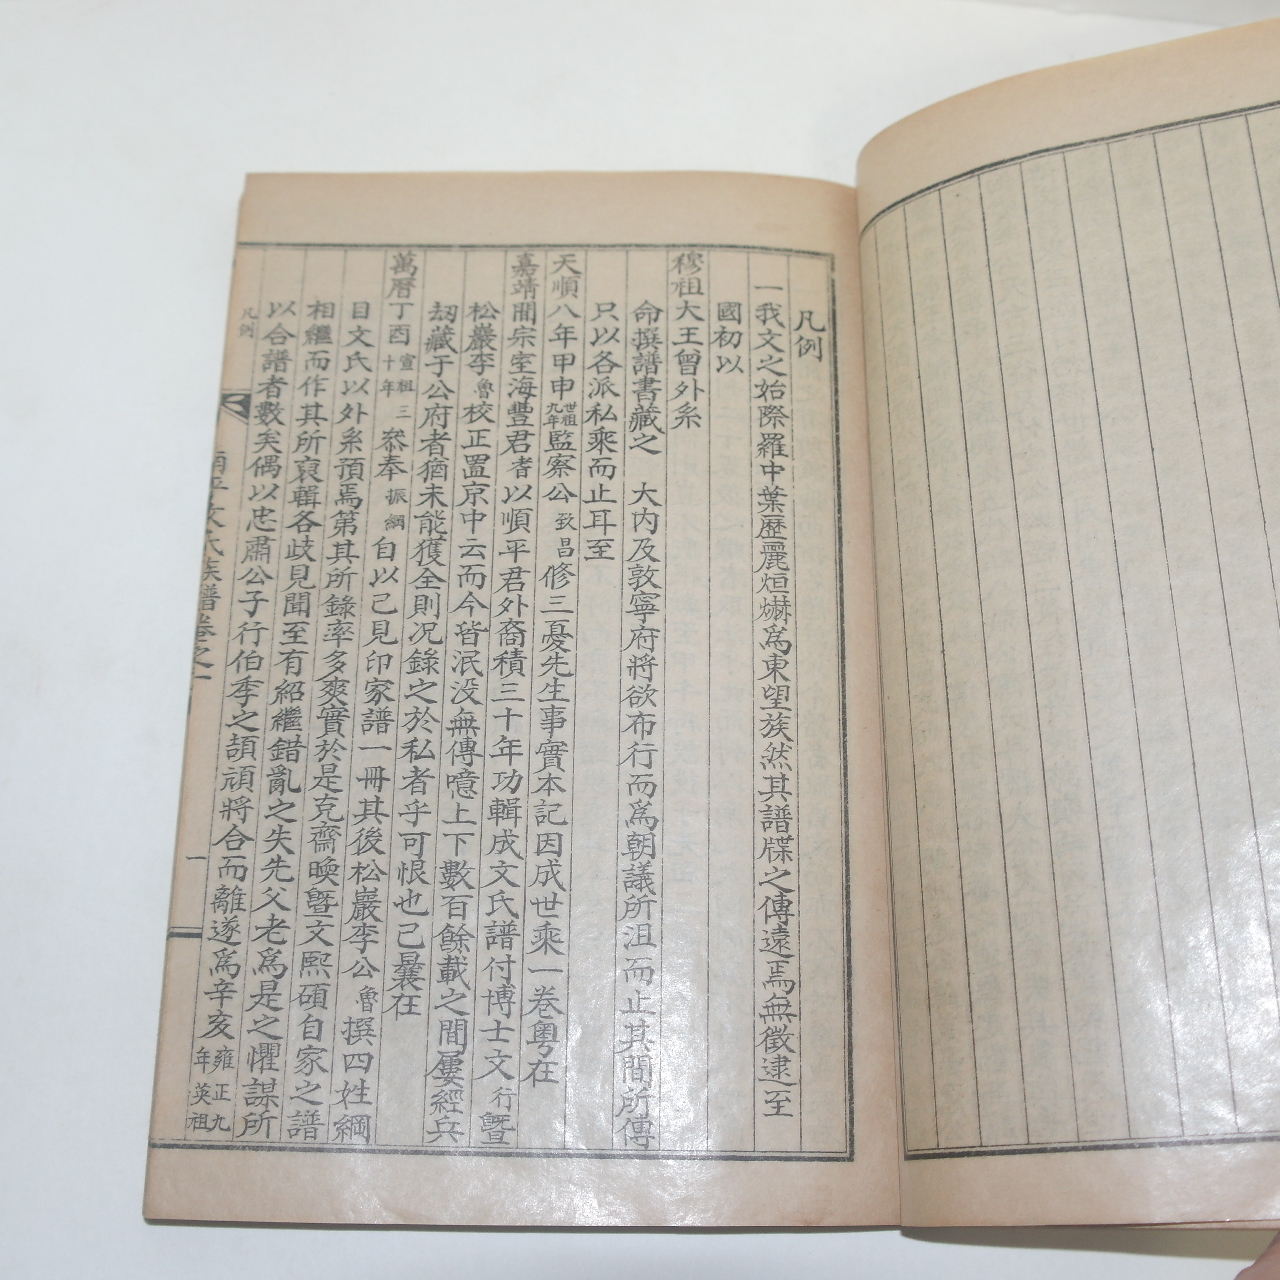 凡例
一我文之始際羅中葉歷麗烜爀爲東望族然其譜牒之傳遠焉無徵逮至
國初以
穆祖大王曾外系
命撰譜書藏之 大內及敦寧府將欲布行而爲朝議所沮而止其間所傳
只以各派私乘而止耳至
天順八年甲申世祖九年監察公致昌修三憂先生事實本記因成世乘一卷粤在
嘉靖間宗室海豐君耆以順平君外裔積三十年功輯成文氏譜付博士文行曁
松巖李魯校正置京中云而今皆泯没無傳噫上下數百餘載之間屢經兵
刼藏于公府者猶未能獲全則况錄之於私者乎可恨也已曩在
萬曆丁酉宣祖三十年叅奉振綱自以己見印家譜一冊其後松巖李公魯撰四姓綱
目文氏以外系預焉第其所錄率多爽實於是克齋㬇曁文熙碩自家之譜
相繼而作其所裒輯各歧見聞至有紹繼錯亂之失先父老爲是之懼謀所
以合譜者數矣偶以忠肅公子行伯季之頡頏將合而離遂爲辛亥雍正九年英祖
凡例
南平文氏族譜卷之一
一